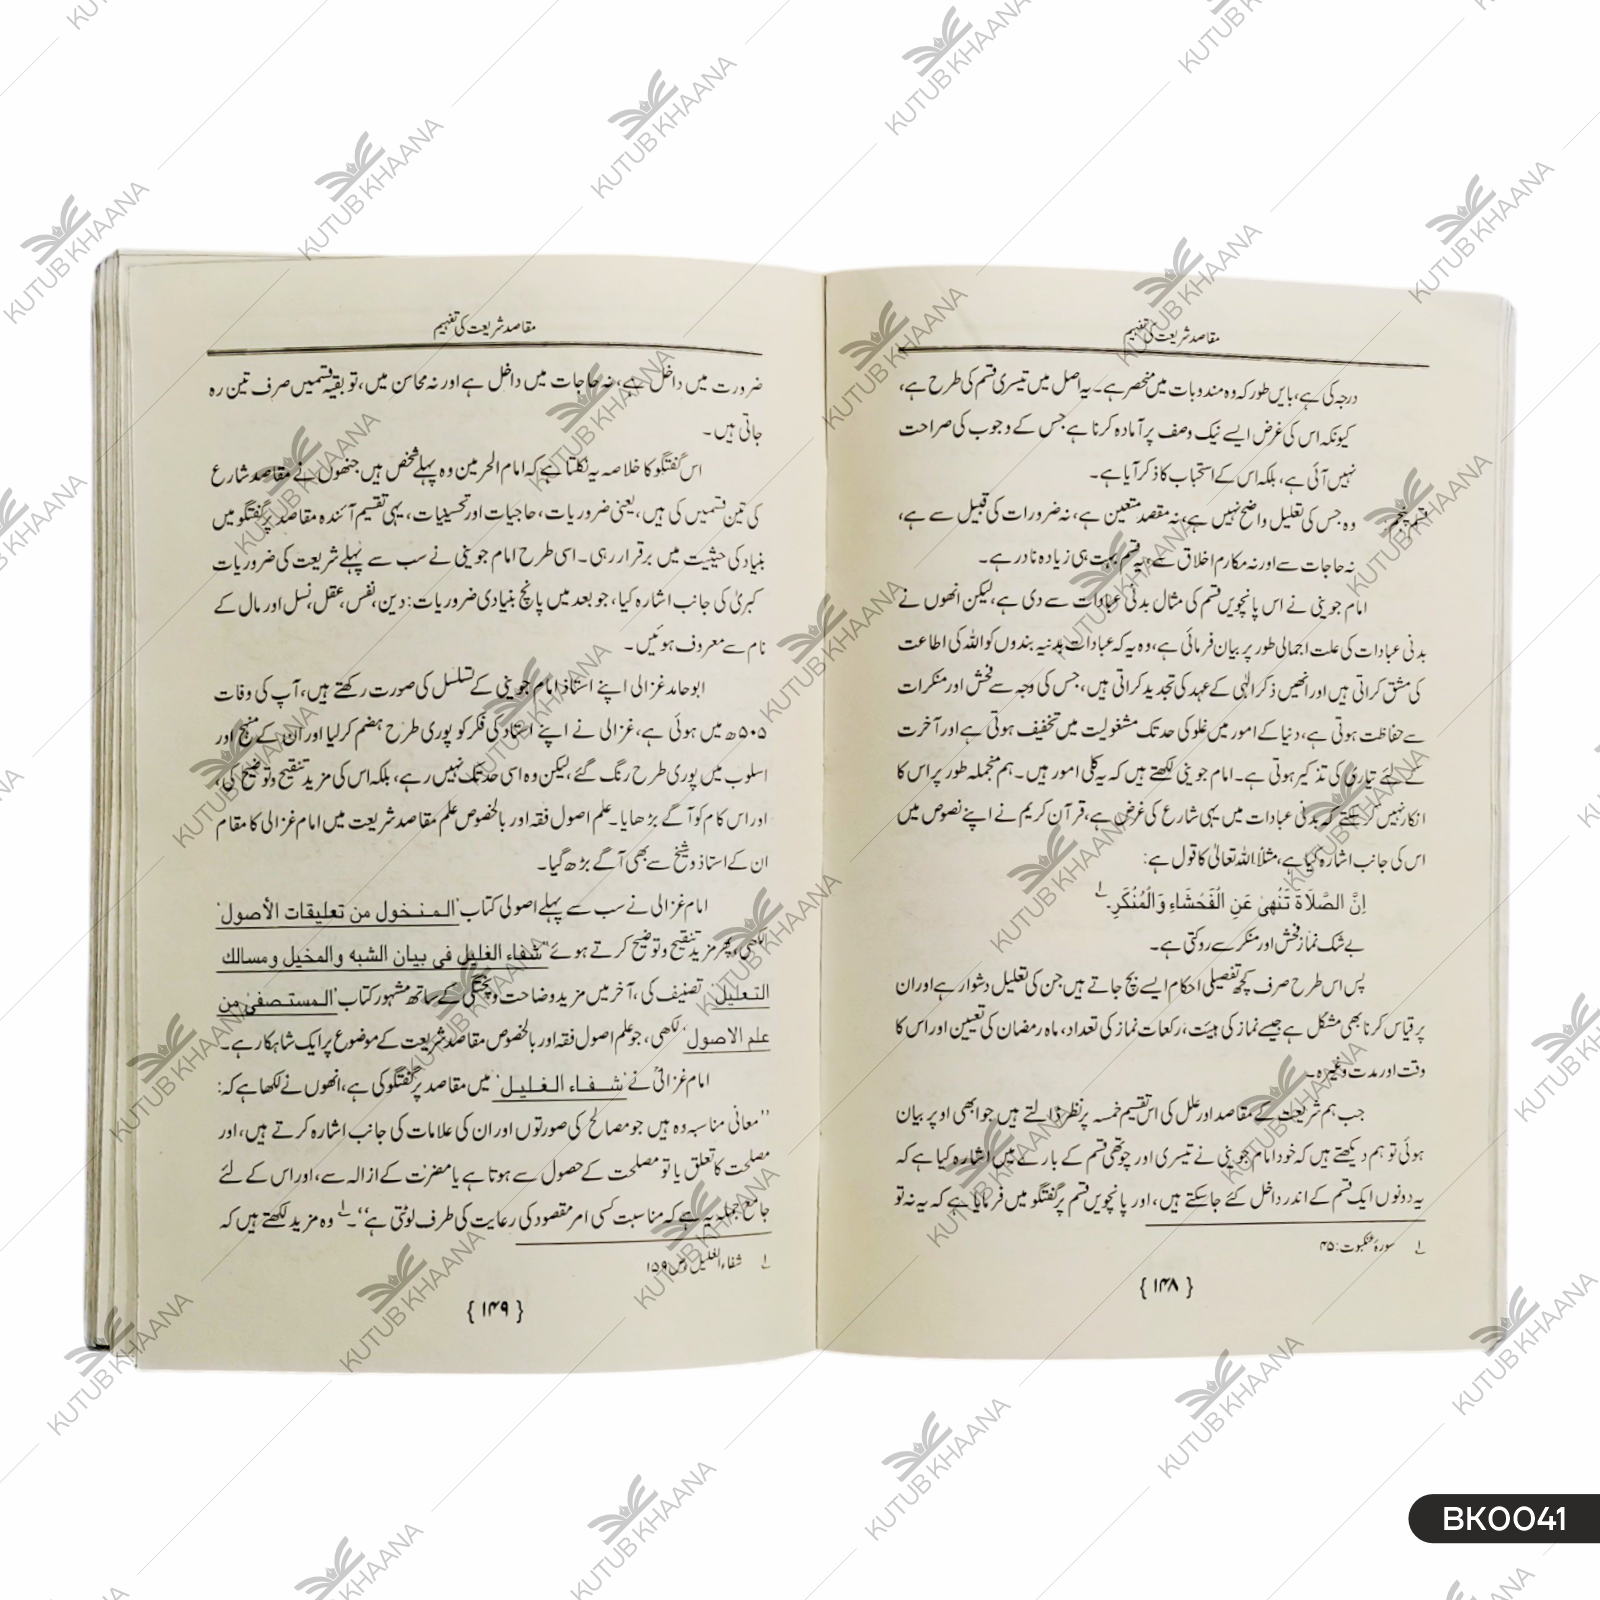 مقاصد شریعت کی تفہیم
درجہ کی ہے، بایں طور کہ وہ مندوبات میں منحصر ہے۔ یہ اصل میں تیسری قسم کی طرح ہے،
کیونکہ اس کی غرض ایسے نیک وصف پر آمادہ کرنا ہے جس کے وجوب کی صراحت
نہیں آئی ہے، بلکہ اس کے استحباب کا ذکر آیا ہے۔
قسم پنجم وہ جس کی تعلیل واضح نہیں ہے، نہ مقصد متعین ہے، نہ ضرورات کی قبیل سے ہے،
نہ حاجات سے اور نہ مکارم اخلاق سے، یہ قسم بہت ہی زیادہ نادر ہے۔
امام جوینی نے اس پانچویں قسم کی مثال بدنی عبادات سے دی ہے، لیکن انھوں نے
بدنی عبادات کی علت اجمالی طور پر بیان فرمائی ہے، وہ یہ کہ عبادات بدنیہ بندوں کو اللہ کی اطاعت
کی مشق کراتی ہیں اور انھیں ذکر الٰہی کے عہد کی تجدید کراتی ہیں، جس کی وجہ سے فحش اور منکرات
سے حفاظت ہوتی ہے، دنیا کے امور میں غلو کی حد تک مشغولیت میں تخفیف ہوتی ہے اور آخرت
کے لئے تیاری کی تذکیر ہوتی ہے۔ امام جوینی لکھتے ہیں کہ یہ کلی امور ہیں۔ ہم منجملہ طور پر اس کا
انکار نہیں کر سکتے کہ بدنی عبادات میں یہی شارع کی غرض ہے، قرآن کریم نے اپنے نصوص میں
اس کی جانب اشارہ کیا ہے، مثلاً اللہ تعالیٰ کا قول ہے:
اِنَّ الصَّلَاةَ تَنْهىٰ عَنِ الْفَحْشَاءِ وَالْمُنْكَرِ۔ ۱
بے شک نماز فحش اور منکر سے روکتی ہے۔
پس اس طرح صرف کچھ تفصیلی احکام ایسے بچ جاتے ہیں جن کی تعلیل دشوار ہے اور ان
پر قیاس کرنا بھی مشکل ہے جیسے نماز کی ہیئت، رکعات نماز کی تعداد، ماہ رمضان کی تعیین اور اس کا
وقت اور مدت وغیرہ۔
جب ہم شریعت کے مقاصد اور علل کی اس تقسیم خمسہ پر نظر ڈالتے ہیں جو ابھی اوپر بیان
ہوئی تو ہم دیکھتے ہیں کہ خود امام جوینی نے تیسری اور چوتھی قسم کے بارے میں اشارہ کیا ہے کہ
یہ دونوں ایک قسم کے اندر داخل کئے جا سکتے ہیں، اور پانچویں قسم پر گفتگو میں فرمایا ہے کہ یہ نہ تو
۱ سورۂ عنکبوت: ۴۵
{ ۱۴۸ }
مقاصد شریعت کی تفہیم
ضرورت میں داخل ہے، نہ حاجات میں داخل ہے اور نہ محاسن میں، تو بقیہ قسمیں صرف تین رہ
جاتی ہیں۔
اس گفتگو کا خلاصہ یہ نکلتا ہے کہ امام الحرمین وہ پہلے شخص ہیں جنھوں نے مقاصد شارع
کی تین قسمیں کی ہیں، یعنی ضروریات، حاجیات اور تحسینیات، یہی تقسیم آئندہ مقاصد پر گفتگو میں
بنیاد کی حیثیت میں برقرار رہی۔ اسی طرح امام جوینی نے سب سے پہلے شریعت کی ضروریات
کبریٰ کی جانب اشارہ کیا، جو بعد میں پانچ بنیادی ضروریات: دین، نفس، عقل، نسل اور مال کے
نام سے معروف ہوئیں۔
ابوحامد غزالی اپنے استاذ امام جوینی کے تسلسل کی صورت رکھتے ہیں، آپ کی وفات
۵۰۵ھ میں ہوئی ہے، غزالی نے اپنے استاد کی فکر کو پوری طرح ہضم کر لیا اور ان کے منہج اور
اسلوب میں پوری طرح رنگ گئے، لیکن وہ اسی حد تک نہیں رہے، بلکہ اس کی مزید تنقیح وتوضیح کی،
اور اس کام کو آگے بڑھایا۔ علم اصول فقہ اور بالخصوص علم مقاصد شریعت میں امام غزالی کا مقام
ان کے استاذ و شیخ سے بھی آگے بڑھ گیا۔
امام غزالی نے سب سے پہلے اصولی کتاب ’المنخول من تعليقات الأصول‘
لکھی، پھر مزید تنقیح وتوضیح کرتے ہوئے ’شفاء الغليل فى بيان الشبه والمخيل ومسالك
التعليل‘ تصنیف کی، آخر میں مزید وضاحت وپختگی کے ساتھ مشہور کتاب ’المستصفیٰ من
علم الاصول‘ لکھی، جو علم اصول فقہ اور بالخصوص مقاصد شریعت کے موضوع پر ایک شاہکار ہے۔
امام غزالیؒ نے ’شفاء الغليل‘ میں مقاصد پر گفتگو کی ہے، انھوں نے لکھا ہے کہ:
’’معانی مناسبہ وہ ہیں جو مصالح کی صورتوں اور ان کی علامات کی جانب اشارہ کرتے ہیں، اور
مصلحت کا تعلق یا تو مصلحت کے حصول سے ہوتا ہے یا مضرت کے ازالہ سے، اور اس کے لئے
جامع جملہ یہ ہے کہ مناسبت کسی امر مقصود کی رعایت کی طرف لوٹتی ہے‘‘۔ ۱ وہ مزید لکھتے ہیں کہ
۱ شفاء الغلیل ص ۱۵۹
{ ۱۴۹ }
KUTUB KHAANA
BK0041